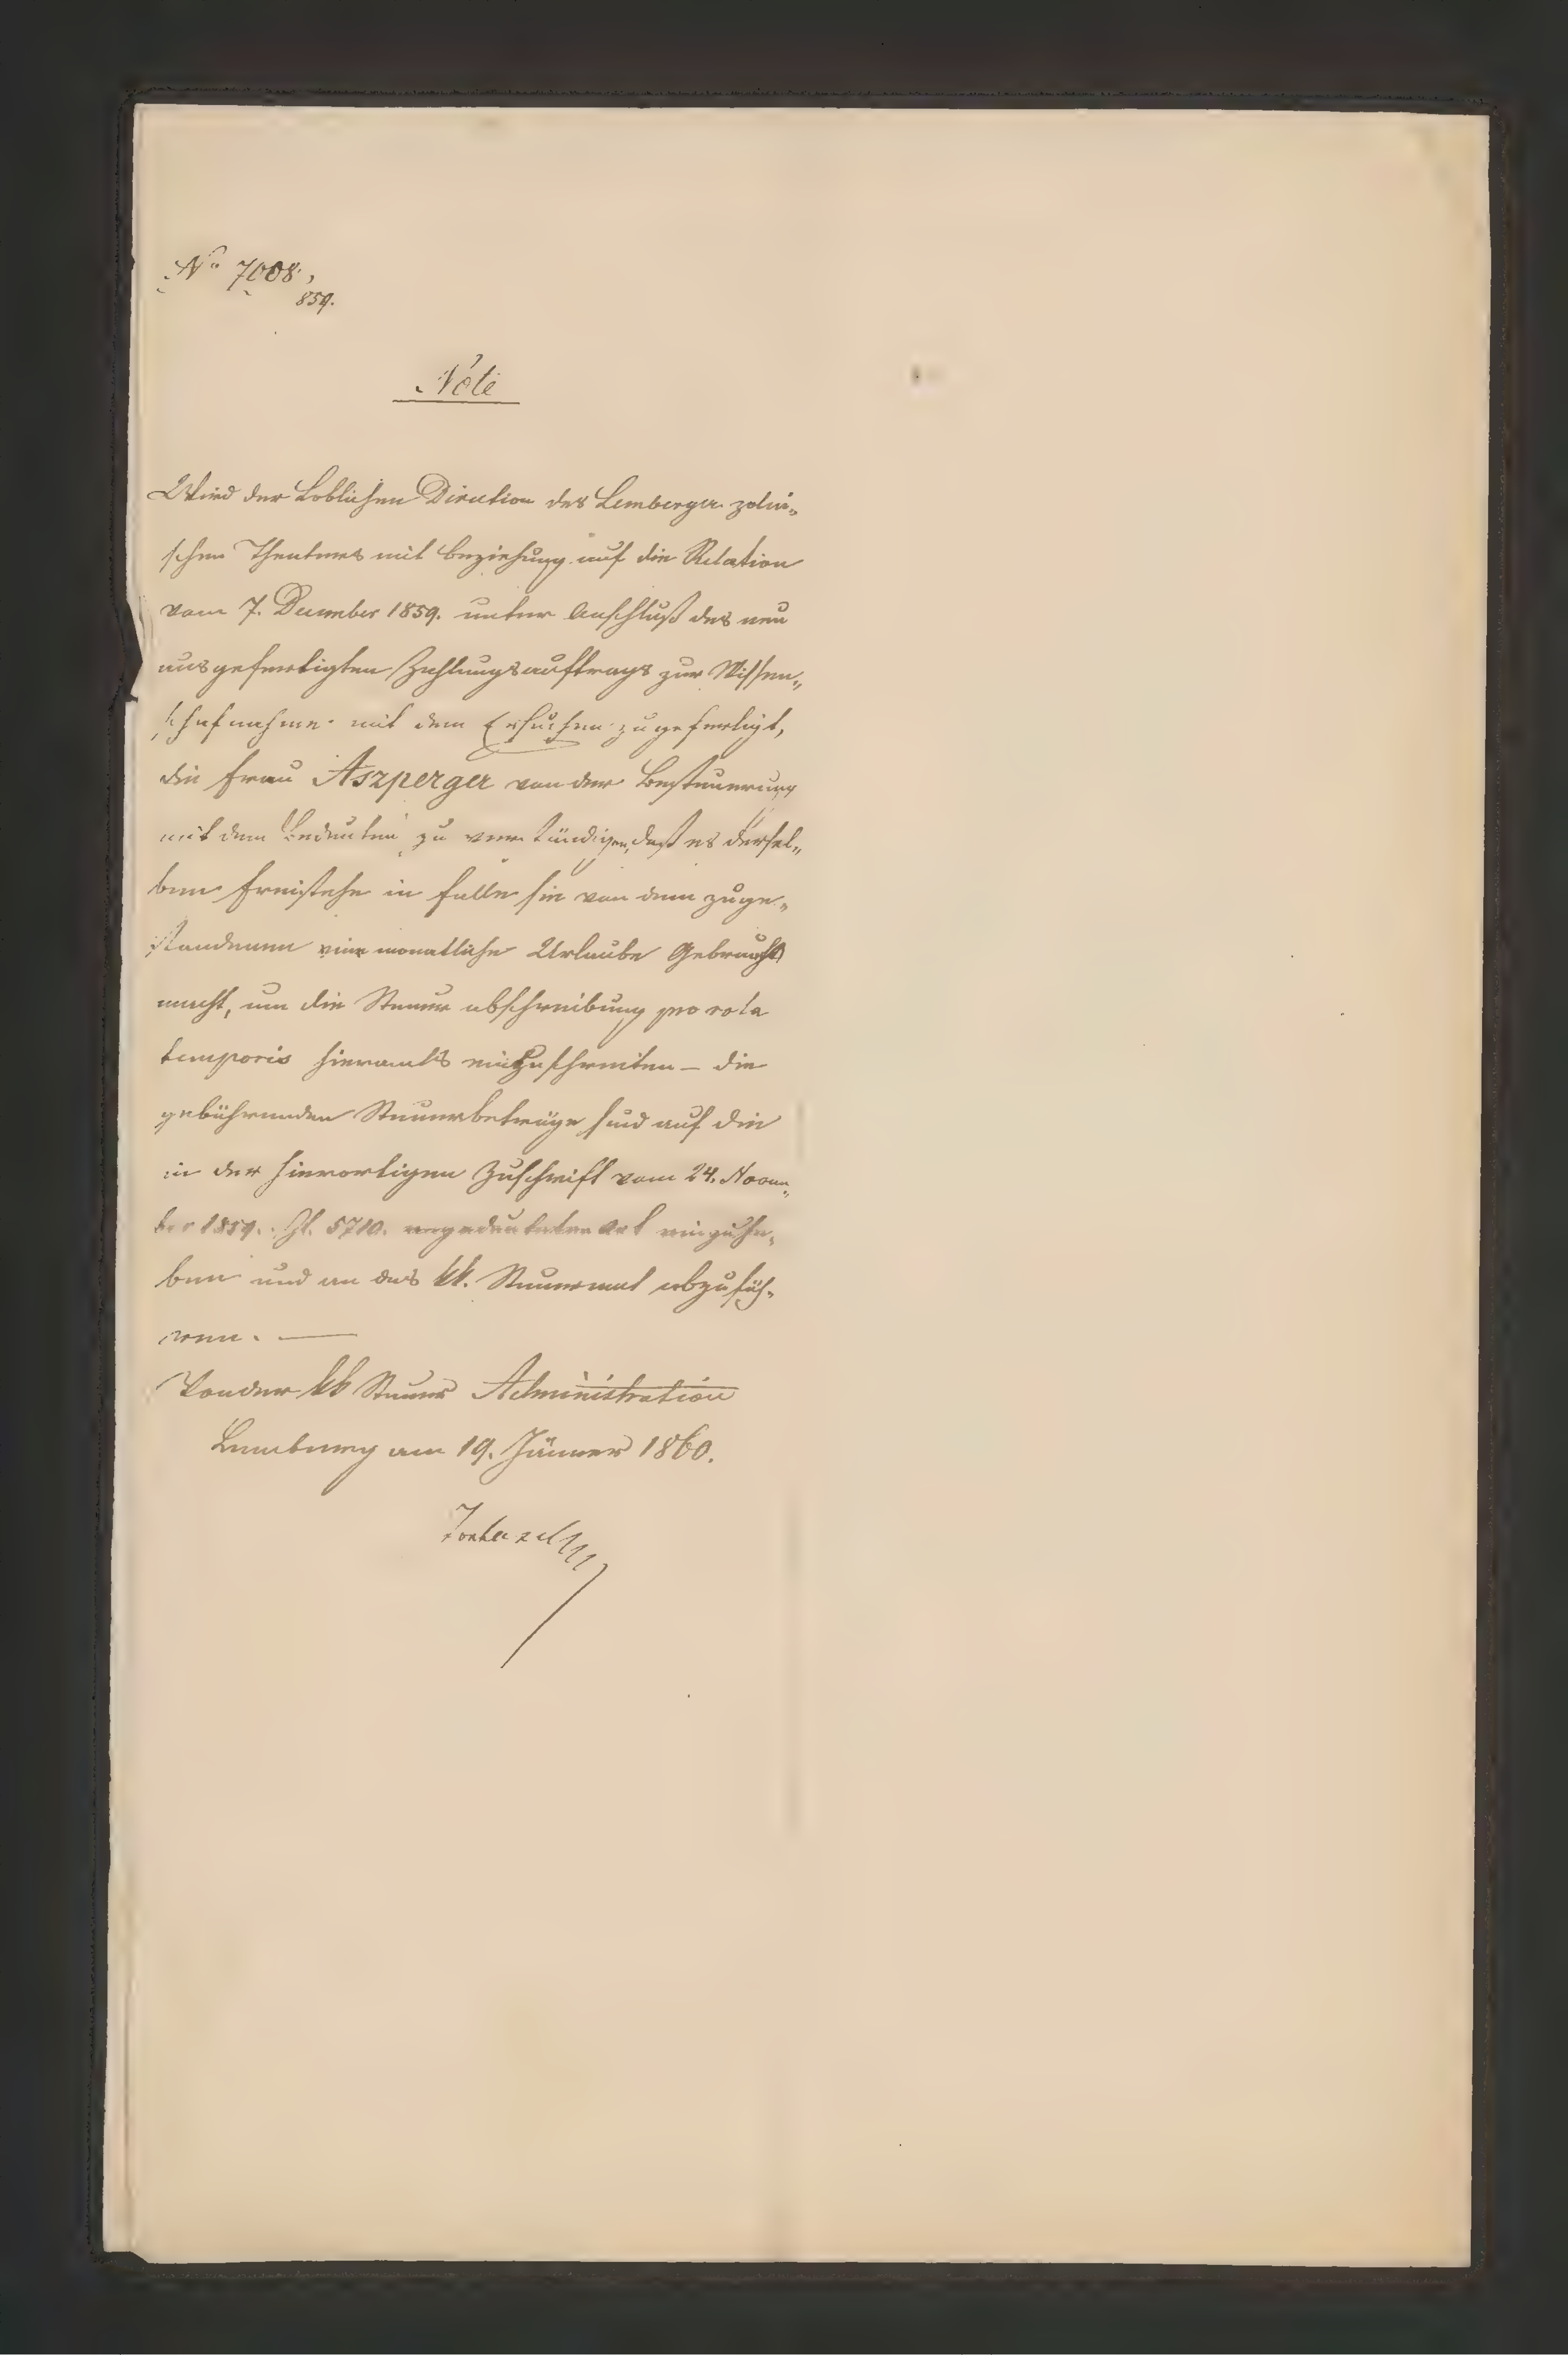 No 7008,
859.
Note
Wird der Löblichen Direction des Lemberger polni„
schen Theaters mit Beziehung auf die Relation
vom 7. December 1859. unter Anschluß des neu
ausgefertigten Zahlungsauftrags zur Wissen„
schafnahme mit dem Ersuchen zugefertigt,
die Frau Aszperger von der Besteuerung
mit dem Bedeuten zu verständigen, daß es dersel„
ben freistehe in Falle sie von dem zuge„
standenen eine monatliche Urlaube Gebrauch
macht, um die Steuer abschreibung pro rata
temporis hieramts einzuschreiten – die
gebührenden Steuerbeträge sind auf die
in der hierortigen Zuschrift vom 24. Novem„
ber 1859. Zl. 5710. angedeuteten Art einzuhe„
ben und an das kk. Steueramt abzufüh„
ren. —
Von der kk Steuer Administration
Lemberg am 19. Jänner 1860.